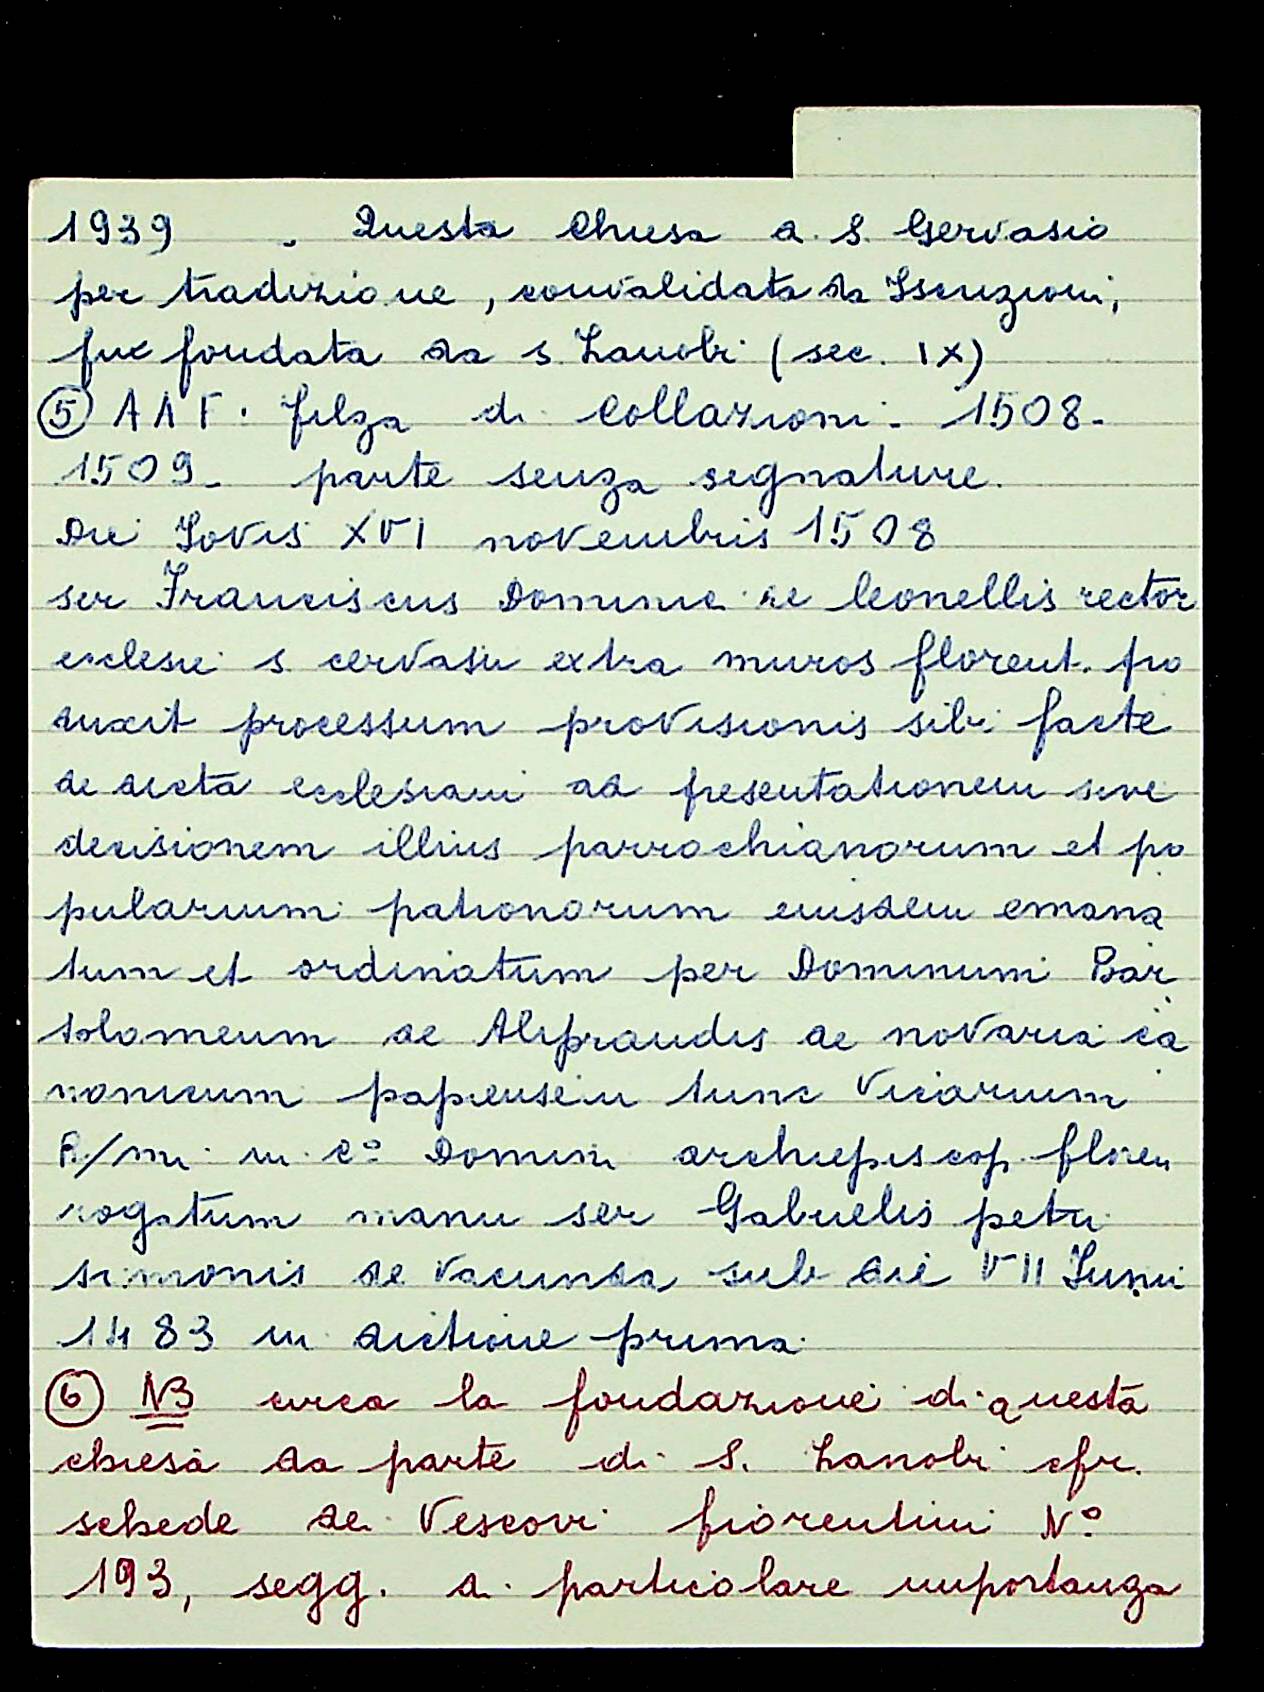 1939 - Questa Chiesa a S. Gervasio
per tradizione, convalidata da Iscrizioni,
fu fondata da S. Zanobi (sec. IX)
⑤ AAF. filza di Collazioni - 1508-
1509 - parte senza segnature.
Die Iovis XVI novembris 1508
ser Franciscus Dominici de leonellis rector
ecclesie s cervasii extra muros florent. pro
duxit processum provisionis sibi facte
de dicta ecclesiam ad presentationem sive
decisionem illius parrochianorum et po
pularium patronorum eiusdem emana
tum et ordinatum per Dominum Bar
tolomeum de Aliprandis de novaria ca
nonicum papiensem tunc Vicarium
R/mi in Cº Domini archiepiscop. floren
rogatum manu ser Gabrielis petri
simonis de Vacunda sub die VII Iunii
1483 in dictione prima
⑥ NB circa la fondazione di questa
chiesa da parte di S. Zanobi cfr.
schede dei Vescovi fiorentini Nº
193, segg. di particolare importanza